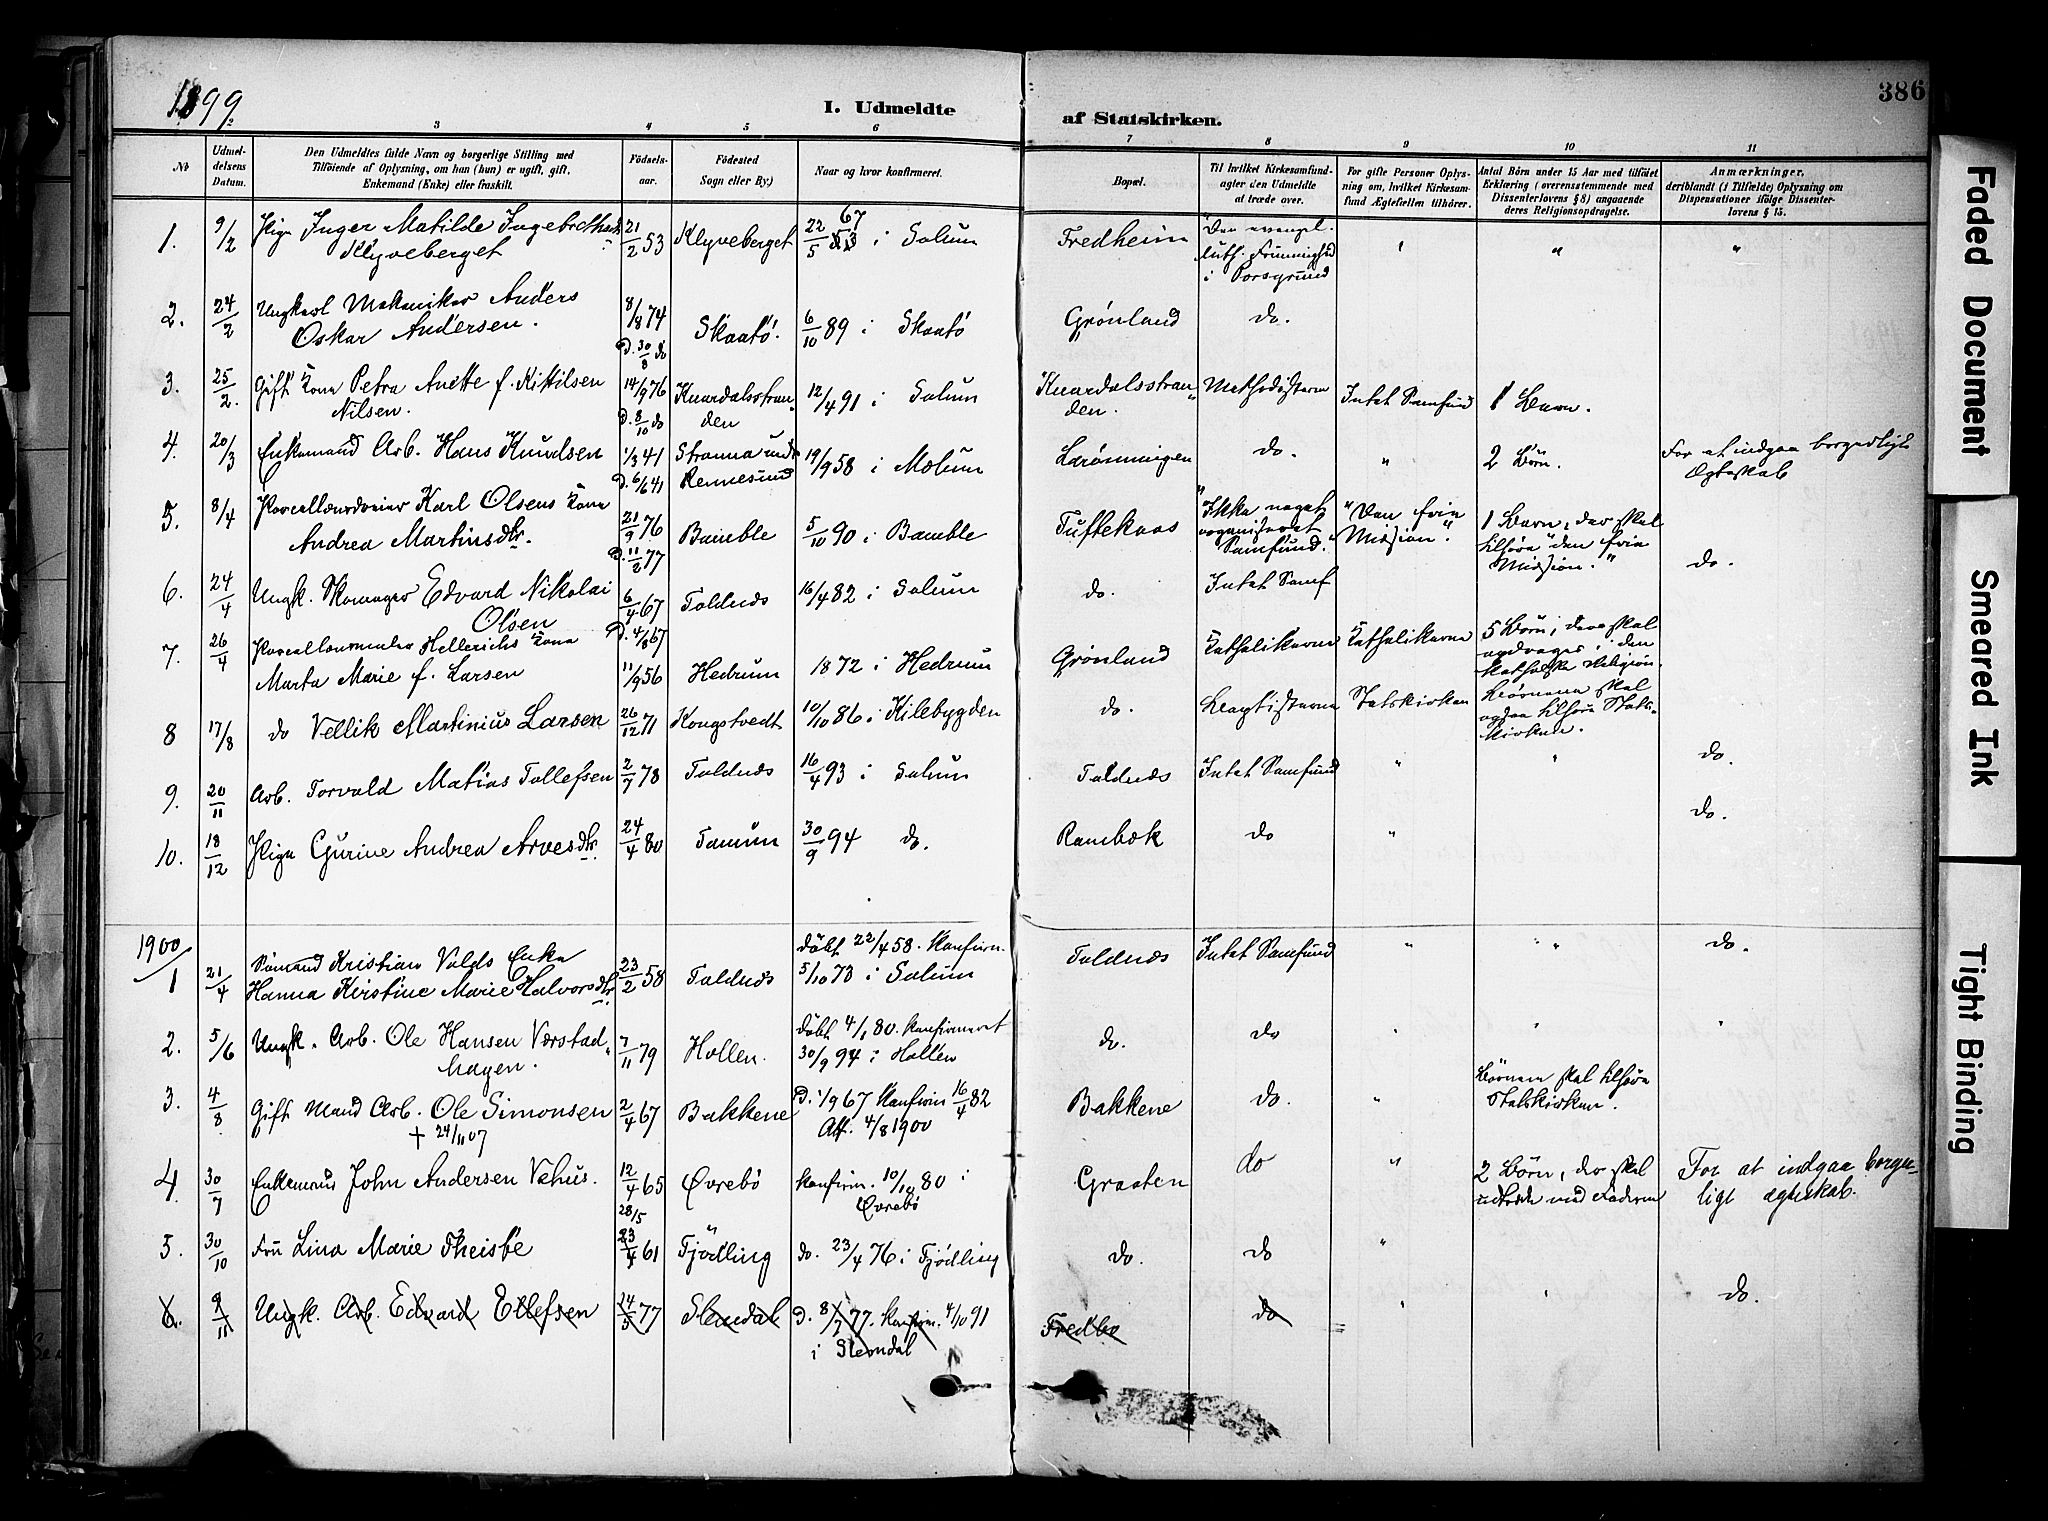 1899
I. Udmeldte
af Statskirken.
386
3 4 5 6 7 8 9 10 11
No
Udmel-
delsens
Datum.
Den Udmeldtes fulde Navn og borgerlige Stilling med
Tilföiende af Oplysning, om han (hun) er ugift, gift,
Enkemand (Enke) eller fraskilt.
Födsels-
aar.
Födested
Sogn eller By.)
Naar og hvor konfirmeret.
Bopæl.
Til hvilket Kirkesamfund-
agter den Udmeldte
at træde over.
For gifte Personer Oplys-
ning om, hvilket Kirkesam-
fund Ægtefællen tilhörer.
Antal Börn under 15 Aar med tilföiet
Erklæring (overensstemmende med
Dissenterlovens § 8) angaaende
deres Religionsopdragelse.
Anmærkninger,
deriblandt (i Tilfælde) Oplysning om
Dispensationer ifölge Dissenter-
lovens § 15.
1. 9/2 Pige Inger Matilde 21/2 53 Klyveberget 22/5 67 i Solum Fredheim "Den evangel. " " "
Klyveberget luth. Frimenighed
i Porsgrund
2. 24/2 Ungkarl Mekaniker Anders 8/8 74 Skaatö. 6/10 89 i Skaatö Grönland do.
Oskar Andersen. D. 30/8 do
3. 25/2. Gift Kone Petra Anette f. Kittilsen 14/9 76 Knardalsstran- 12/4 91 i Solum Knardalsstran- Methodisterne Intet Samfund 1 Barn.
Nilsen. D. 8/10 do den den.
4. 20/3 Enkemand Arb. Hans Knudsen 1/3 41 19/9 58 i Molum Lerönningen do. " 2 Börn. For at indgaa borgerligt
D. 6/6 41 Rennesund Ægteskab
5. 8/4 Porcellænsdreier Karl Olsens Kone 21/9 76 Bamble 5/10 90 i Bamble Tuftekaas "Ikke noget "Den frie 1 Barn, der skal
Andrea Martinsdtr. D. 11/2 77 organiseret Mission." tilhöre "den frie
Samfund." Mission." do.
6. 24/4 Ungk. Skomager Edvard Nikolai 6/4 67 Toldnes 16/4 82 i Solum do. Intet Samf
Olsen D. 4/8 67
7. 26/4 Porcellænsmaler Hellerichs Kone 11/9 56 Hedrum 1872 i Hedrum Grönland Katholikerne Katholikerne 5 Börn, der skal
Marta Marie f. Larsen opdrages i den
katholske Religion.
8 17/8 do Vellik Martinius Larsen 26/12 71 Kongstvedt 10/10 86 i Kilebygden do. Baptisterne Statskirken Börnene skal
ogsaa tilhöre Stats-
kirken.
9. 20/11 Arb. Torvald Matias Tollefsen 2/7 78 Toldnes 16/4 93 i Solum Toldnes Intet Samfund " " do.
10. 18/12 Pige Gurine Andrea Arvesdtr. 24/4 80 Tanum 30/9 94 do. Rambek do " do.
1900
1 21/4 Sömand Kristian Volds Enke 23/2 58 Toldnes döbt 22/4 58. konfirm. Toldnes Intet Samfund " " " do.
Hanna Kirstine Marie Halvorsdtr 5/10 73 i Solum
2. 5/6 Ungk. Arb. Ole Hansen Værstad- 7/11 79 Hollen. döbt 4/1 80. konfirmeret do. do " " "
hagen. 30/9 94 i Hollen
3. 4/8 Gift Mand Arb. Ole Simonsen 2/4 67 Bakkene D. 1/9 67 konfirm 16/4 82 Bakkene do. " Börnene skal tilhöre
+ 24/11 07 Att. 4/8 1900 Statskirken.
4. 30/7 John Andersen Vehus. 12/4 65 Övrebö konfirm. 10/10 80 i Graaten do " 2 Börn, der skal For at indgaa borger-
Övrebö udtræde med Faderen ligt ægteskab.
5. 30/10 Fru Lina Marie Theiste 28/5 23/4 61 Fjödling do. 23/4 76 i Fjödling do. do "
6. 9/11 Ungk. Arb. Edvard Ellefsen 14/5 77 Slemdal D. 8/7 77. konfirm. 4/10 91 Fredbo do " " do.
i Slemdal
Faded Document
Smeared Ink
Tight Binding